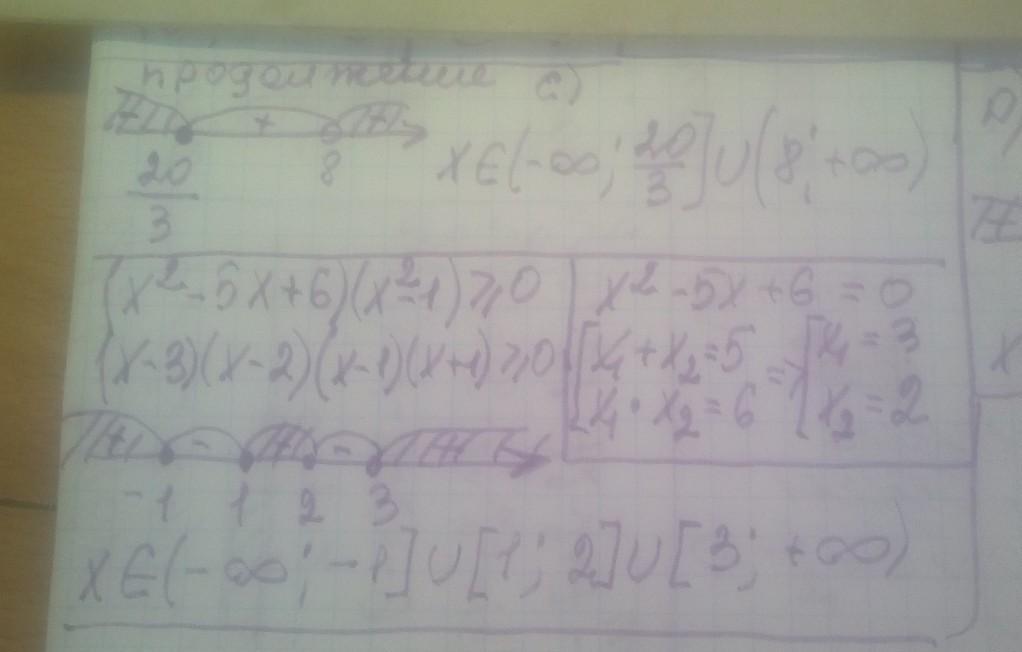 продолжение с)
+
20/3 8 x∈(-∞; 20/3]∪(8; +∞)
(x²-5x+6)(x²-1)⩾0
(x-3)(x-2)(x-1)(x+1)⩾0
+ - + - +
-1 1 2 3
x²-5x+6=0
[x₁+x₂=5 => [x₁=3
x₁·x₂=6 x₂=2
x∈(-∞; -1]∪[1; 2]∪[3; +∞)